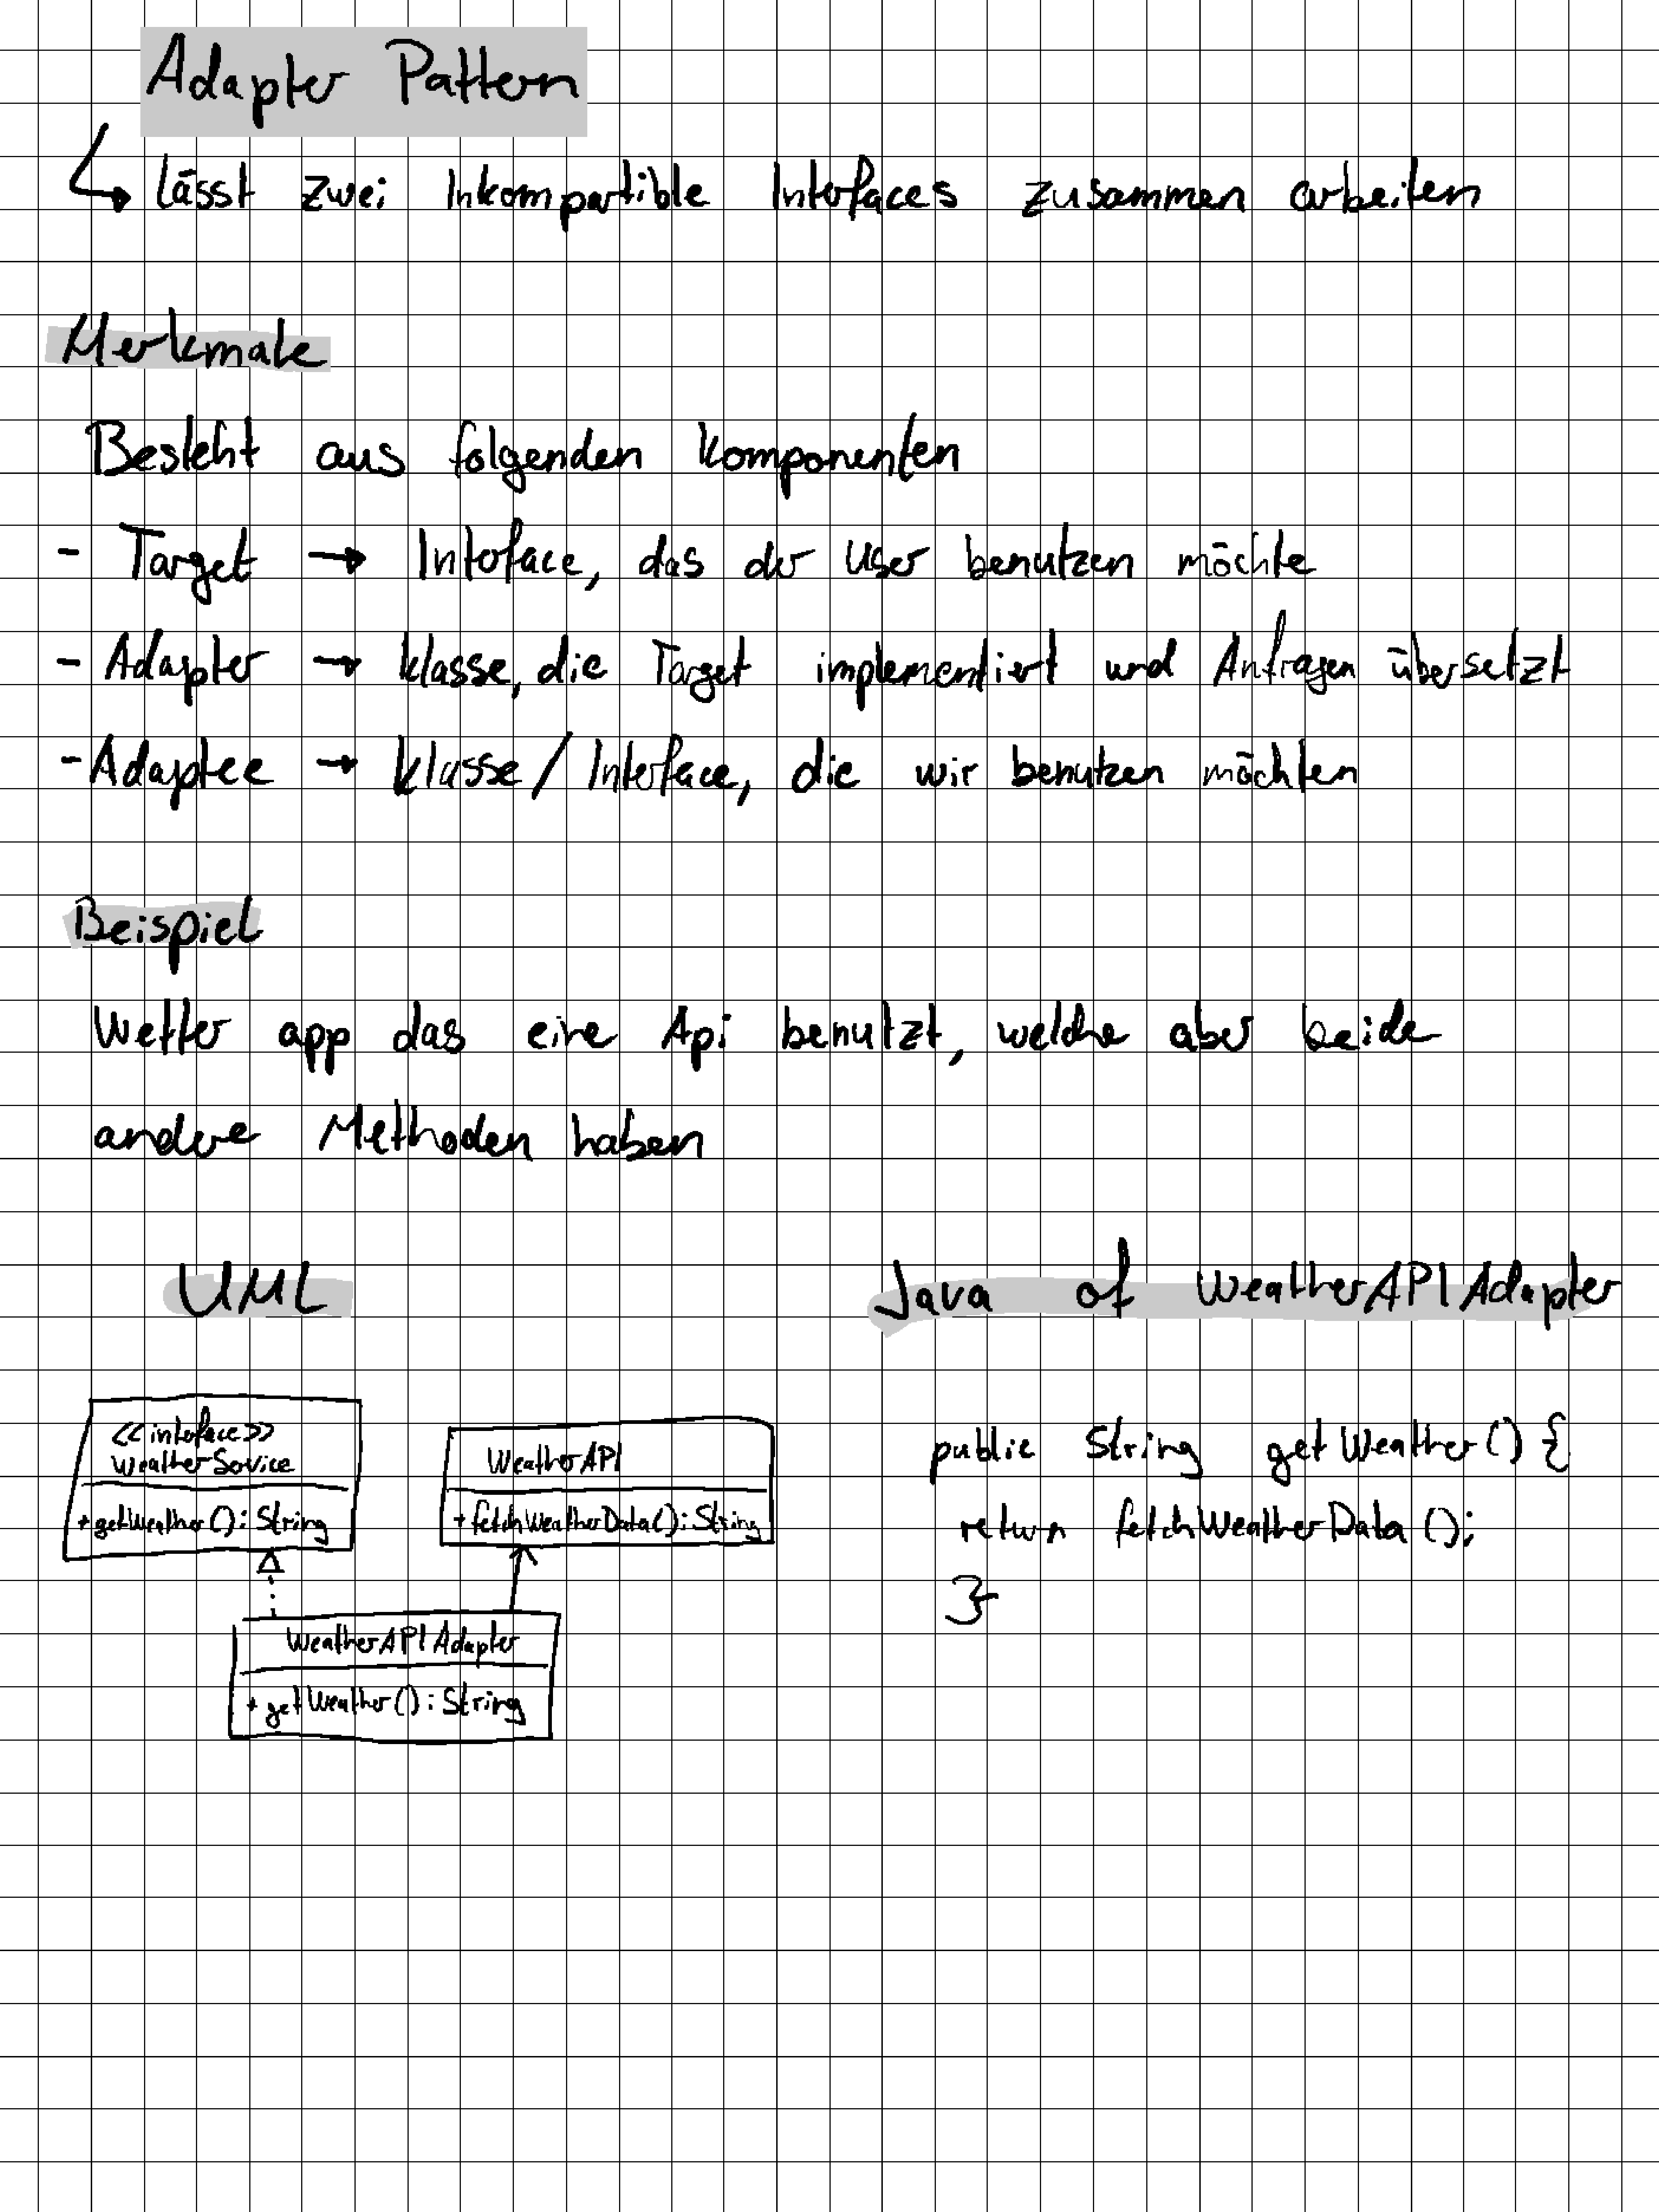 Adapter Pattern
↳ lässt zwei Inkompartible Interfaces zusammen arbeiten
Merkmale
Besteht aus folgenden Komponenten
- Target → Interface, das der User benutzen möchte
- Adapter → Klasse, die Target implementiert und Anfragen übersetzt
- Adaptee → Klasse/Interface, die wir benutzen möchten
Beispiel
Wetter app das eine Api benutzt, welche aber beide
andere Methoden haben
UML
<<interface>>
WeatherService
+ getWeather(): String
WeatherAPI
+ fetchWeatherData(): String
WeatherAPIAdapter
+ getWeather(): String
Java of WeatherAPIAdapter
public String getWeather() {
return fetchWeatherData();
}